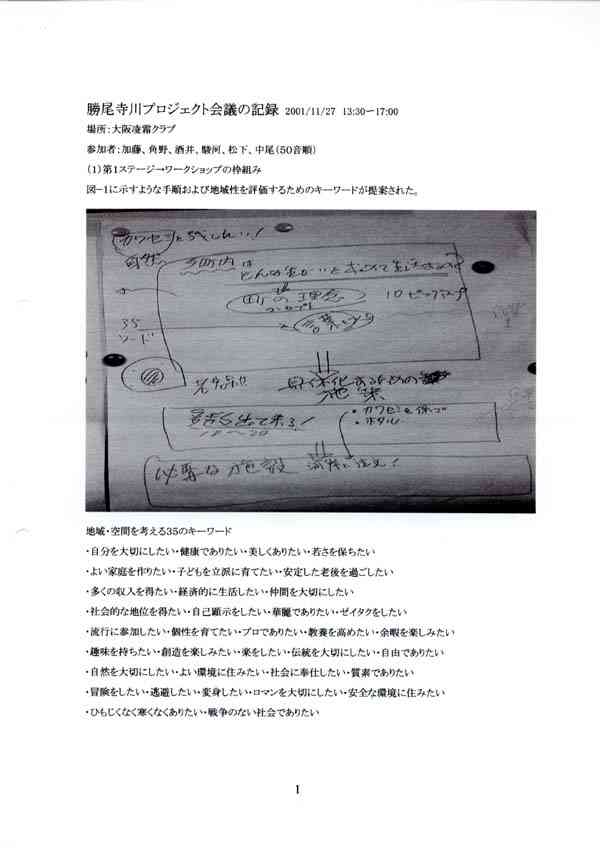 勝尾寺川プロジェクト会議の記録 2001/11/27 13:30ー17:00
場所：大阪凌霜クラブ
参加者：加藤、角野、酒井、駿河、松下、中尾（50音順）
（1）第1ステージ→ワークショップの枠組み
図−1に示すような手順および地域性を評価するためのキーワードが提案された。
カワセミを残したい！
町の理念
言葉
10ピックアップ
35
ワード
具体化するための
施策
・カワセミを保ゴ
・ホタル
必要な施設
地域・空間を考える35のキーワード
・自分を大切にしたい・健康でありたい・美しくありたい・若さを保ちたい
・よい家庭を作りたい・子どもを立派に育てたい・安定した老後を過ごしたい
・多くの収入を得たい・経済的に生活したい・仲間を大切にしたい
・社会的な地位を得たい・自己顕示をしたい・華麗でありたい・ゼイタクをしたい
・流行に参加したい・個性を育てたい・プロでありたい・教養を高めたい・余暇を楽しみたい
・趣味を持ちたい・創造を楽しみたい・楽をしたい・伝統を大切にしたい・自由でありたい
・自然を大切にしたい・よい環境に住みたい・社会に奉仕したい・質素でありたい
・冒険をしたい・逃避したい・変身したい・ロマンを大切にしたい・安全な環境に住みたい
・ひもじくなく寒くなくありたい・戦争のない社会でありたい
1